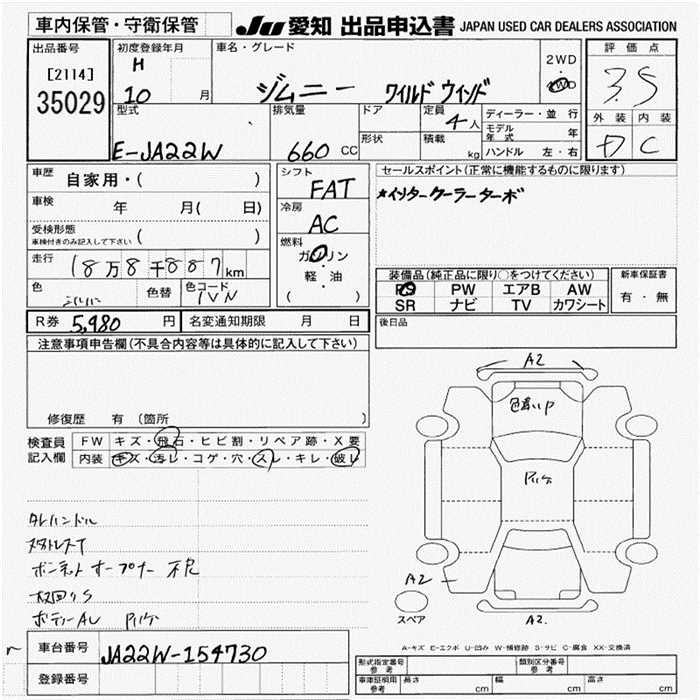 車内保管・守衛保管
JU 愛知 出品申込書 JAPAN USED CAR DEALERS ASSOCIATION
出品番号
[2114]
35029
初度登録年月
H
10 月
車名・グレード
ジムニー ワイルド ウインド
2WD
・
4WD
評価点
3.5
外装 内装
D C
型式
E-JA22W
排気量
660 CC
ドア
形状
定員
4人
積載
kg
ディーラー・並 行
モデル年式 年
ハンドル 左・右
車歴 自家用・( )
車検 年 月( 日)
受検形態
車検付きのみ記入して下さい ( )
走行 18万8千887km
色
色替
色コード
1VN
シフト
FAT
冷房
AC
燃料
ガソリン
・
軽・油
( )
セールスポイント(正常に機能するものに限ります)
★インタークーラーターボ
装備品(純正品に限り○をつけてください)
PS PW エアB AW
SR ナビ TV カワシート
新車保証書
有・無
後日品
R券 5,980 円
名変通知期限 月 日
注意事項申告欄(不具合内容等は具体的に記入して下さい)
修復歴 有(箇所 )
検査員
記入欄
FW キズ・飛石・ヒビ割・リペア跡・X要
内装 キズ・汚レ・コゲ・穴・スレ・キレ・破レ
タレハンドル
ボンネットオープナー 不良
車台番号 JA22W-154730
登録番号
A2
色違いP
A2
A2
スペア
A-キズ E-エクボ U-凹み W-補修跡 S-サビ C-腐食 XX-交換済
形式指定番号
参考
類別区分番号
参考
車庫証明用
参考
長さ cm
幅 cm
高さ cm